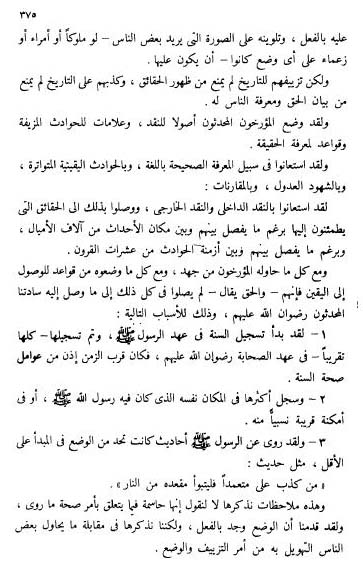 ٣٧٥
عليه بالفعل ، وتلوينه على الصورة التى يريد بعض الناس – لو ملوكاً أو أمراء أو
زعماء على أى وضع كانوا – أن يكون عليها .
ولكن تزييفهم للتاريخ لم يمنع من ظهور الحقائق ، وكذبهم على التاريخ لم يمنع
من بيان الحق ومعرفة الناس له .
ولقد وضع المؤرخون المحدثون أصولا للنقد ، وعلامات للحوادث المزيفة
وقواعد لمعرفة الحقيقة .
ولقد استعانوا فى سبيل المعرفة الصحيحة باللغة ، وبالحوادث اليقينية المتواترة ،
وبالشهود العدول ، وبالمقارنات :
لقد استعانوا بالنقد الداخلى والنقد الخارجى ، ووصلوا بذلك الى الحقائق التى
يطمئنون إليها برغم ما يفصل بينهم وبين مكان الأحداث من آلاف الأميال ،
وبرغم ما يفصل بينهم وبين أزمنة الحوادث من عشرات القرون .
ومع كل ما حاوله المؤرخون من جهد ، ومع كل ما وضعوه من قواعد للوصول
إلى اليقين فإنهم – والحق يقال – لم يصلوا فى كل ذلك إلى ما وصل إليه سادتنا
المحدثون رضوان الله عليهم ، وذلك للأسباب التالية :
١ – لقد بدأ تسجيل السنة فى عهد الرسول ﷺ ، وتم تسجيلها – كلها
تقريباً – فى عهد الصحابة رضوان الله عليهم ، فكان قرب الزمن إذن من عوامل
صحة السنة .
٢ – وسجل أكثرها فى المكان نفسه الذى كان فيه رسول الله ﷺ ، أو فى
أمكنة قريبة نسبياً منه .
٣ – ولقد روى عن الرسول ﷺ أحاديث كانت تحد من الوضع فى المبدأ على
الأقل ، مثل حديث :
« من كذب على متعمداً فليتبوأ مقعده من النار » .
وهذه ملاحظات نذكرها لا لنقول إنها حاسمة فيما يتعلق بأمر صحة ما روى ،
ولقد قدمنا أن الوضع وجد بالفعل ، ولكننا نذكرها فى مقابلة ما يحاول بعض
الناس التهويل به من أمر التزييف والوضع .